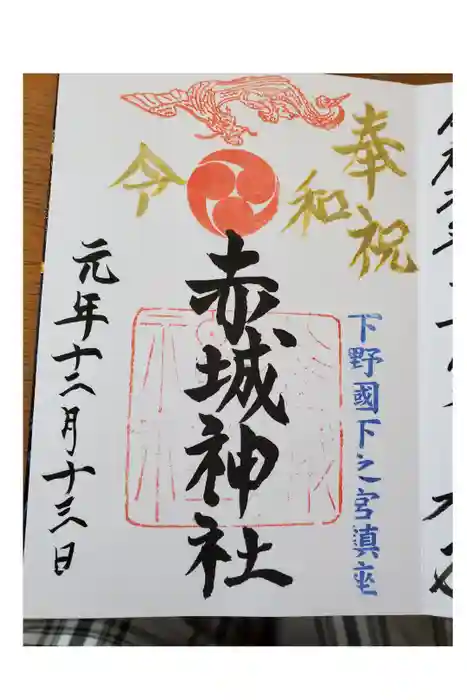 奉祝
令和
下野國下之宮鎮座
赤城神社
元年十二月十三日